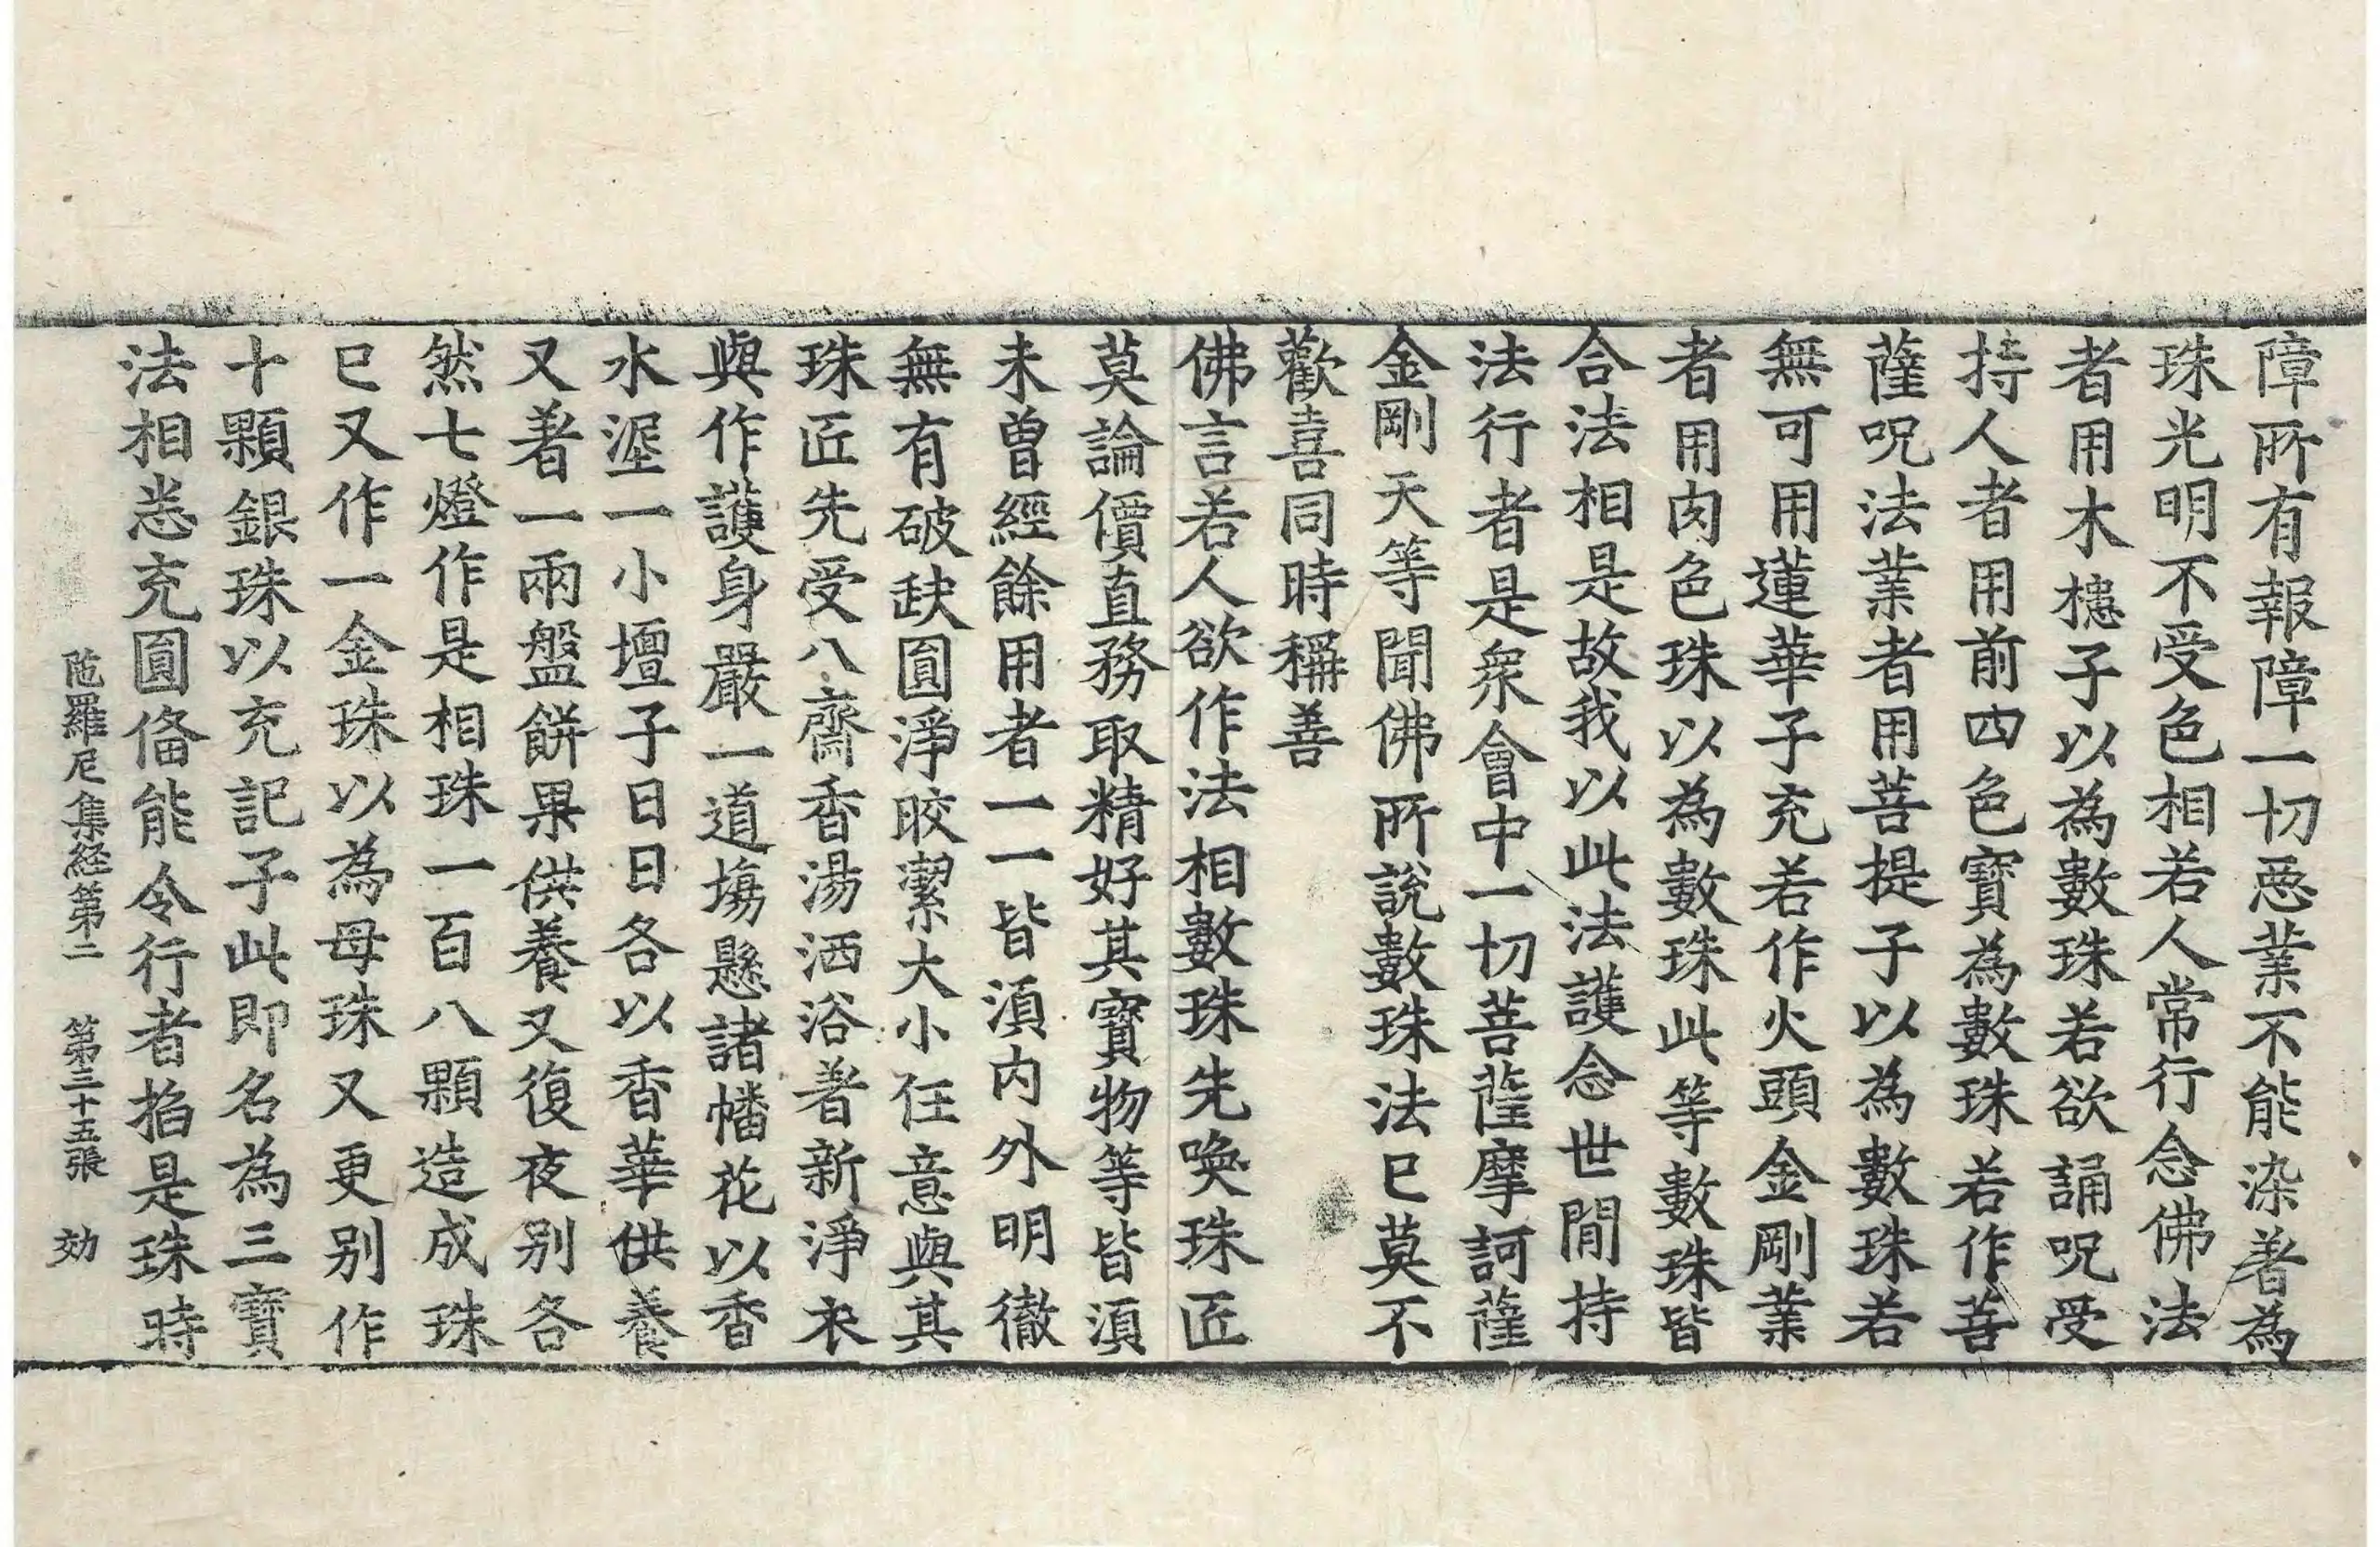 障所有報障一切惡業不能染著為
珠光明不受色相若人常行念佛法
者用木槵子以為數珠若欲誦呪受
持人者用前四色寶為數珠若作菩
薩呪法業者用菩提子以為數珠若
無可用蓮華子充若作火頭金剛業
者用肉色珠以為數珠此等數珠皆
合法相是故我以此法護念世間持
法行者是衆會中一切菩薩摩訶薩
金剛天等聞佛所說數珠法已莫不
歡喜同時稱善
佛言若人欲作法相數珠先喚珠匠
莫論價直務取精好其寶物等皆須
未曾經餘用者一一皆須內外明徹
無有破缺圓淨皎潔大小任意與其
珠匠先受八齋香湯洒浴著新淨衣
與作護身嚴一道場懸諸幡花以香
水渥一小壇子日日各以香華供養
又著一兩盤餅果供養又復夜別各
然七燈作是相珠一百八顆造成珠
已又作一金珠以為母珠又更別作
十顆銀珠以充記子此即名為三寶
法相悉充圓俻能令行者掐是珠時
陁羅尼集経第二 第三十五張 効